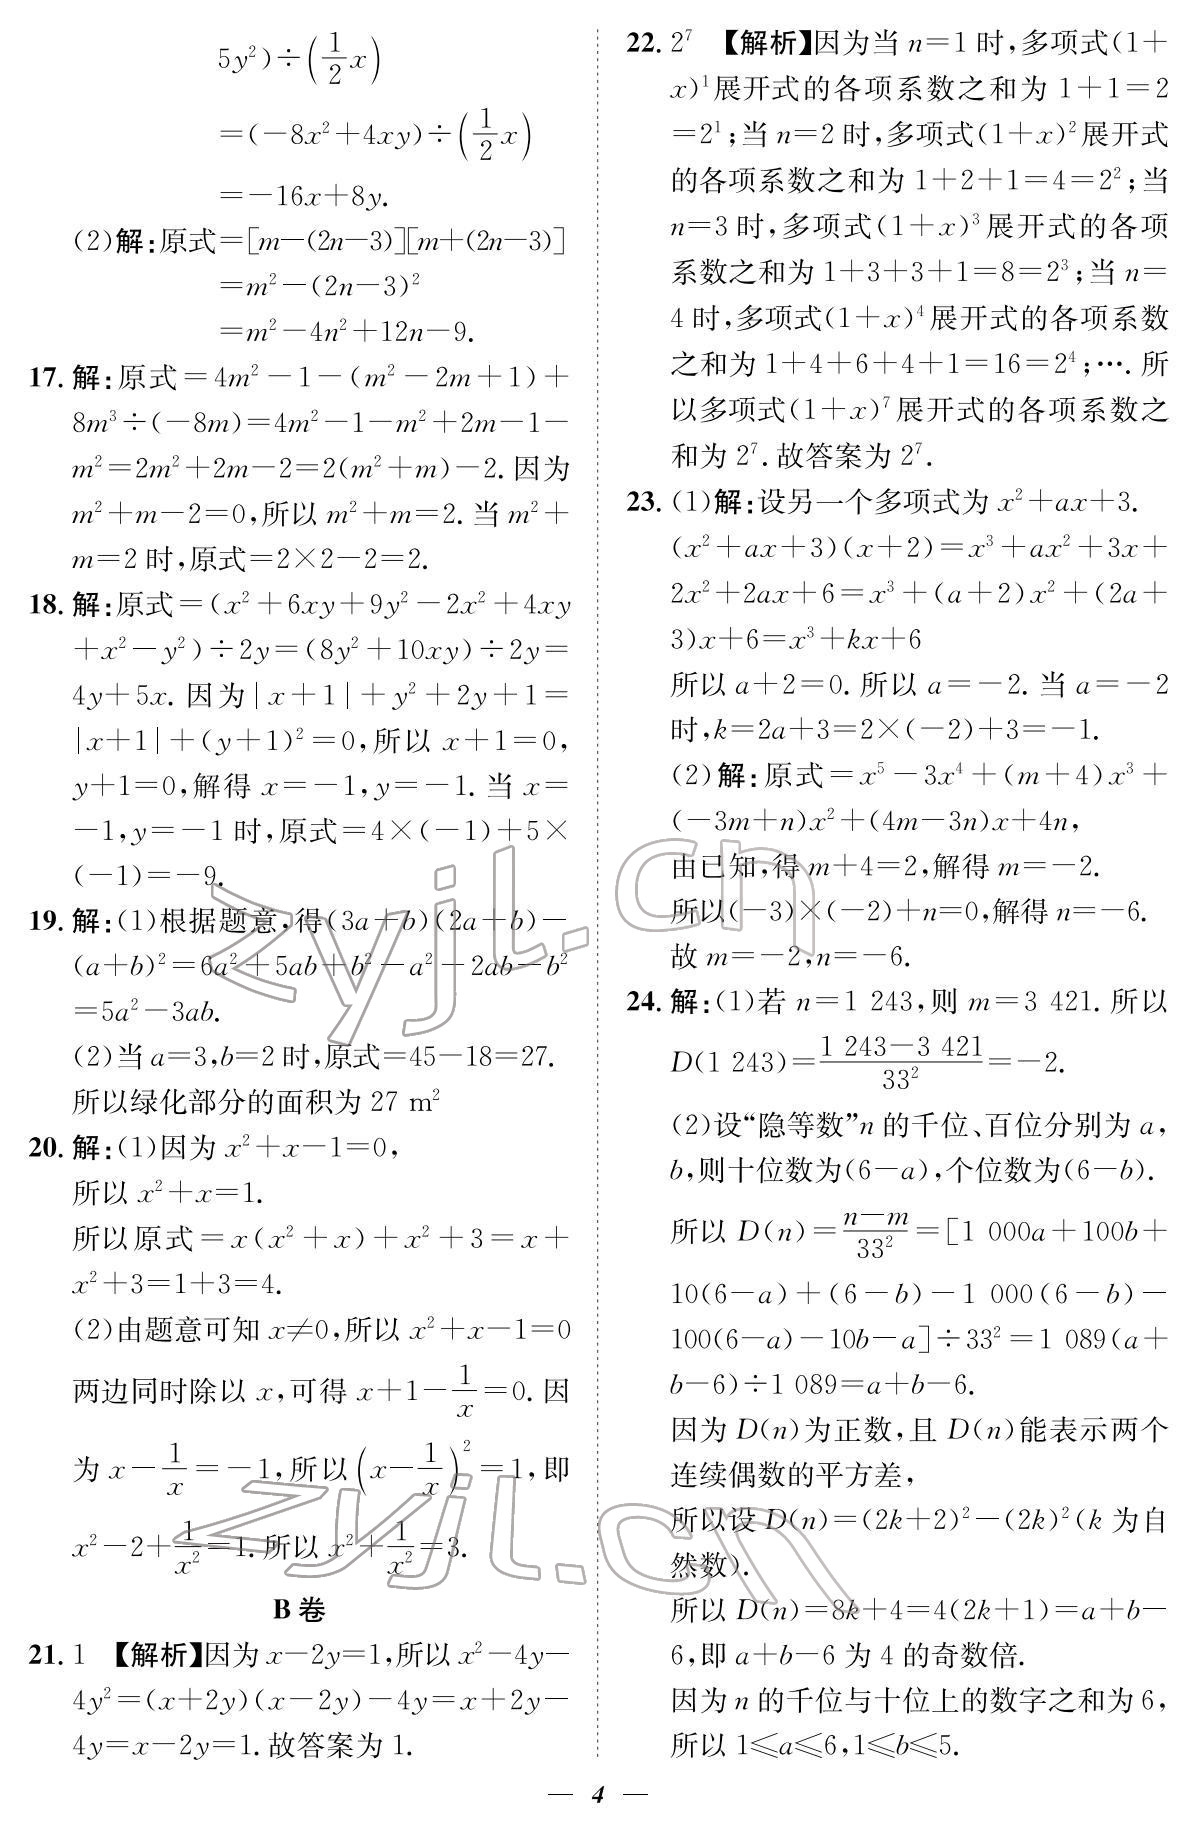 5y²)÷(1/2 x)
=(-8x²+4xy)÷(1/2 x)
=-16x+8y.
(2)解:原式=[m-(2n-3)][m+(2n-3)]
=m²-(2n-3)²
=m²-4n²+12n-9.
17. 解:原式=4m²-1-(m²-2m+1)+
8m³÷(-8m)=4m²-1-m²+2m-1-
m²=2m²+2m-2=2(m²+m)-2. 因为
m²+m-2=0,所以 m²+m=2. 当 m²+
m=2 时,原式=2×2-2=2.
18. 解:原式=(x²+6xy+9y²-2x²+4xy
+x²-y²)÷2y=(8y²+10xy)÷2y=
4y+5x. 因为|x+1|+y²+2y+1=
|x+1|+(y+1)²=0,所以 x+1=0,
y+1=0,解得 x=-1,y=-1. 当 x=
-1,y=-1 时,原式=4×(-1)+5×
(-1)=-9.
19. 解:(1)根据题意,得(3a+b)(2a+b)-
(a+b)²=6a²+5ab+b²-a²-2ab-b²
=5a²-3ab.
(2)当 a=3,b=2 时,原式=45-18=27.
所以绿化部分的面积为 27 m²
20. 解:(1)因为 x²+x-1=0,
所以 x²+x=1.
所以原式=x(x²+x)+x²+3=x+
x²+3=1+3=4.
(2)由题意可知 x≠0,所以 x²+x-1=0
两边同时除以 x,可得 x+1-1/x=0. 因
为 x-1/x=-1,所以(x-1/x)²=1,即
x²-2+1/x²=1. 所以 x²+1/x²=3.
B卷
21. 1 【解析】因为 x-2y=1,所以 x²-4y-
4y²=(x+2y)(x-2y)-4y=x+2y-
4y=x-2y=1. 故答案为 1.
22. 2⁷ 【解析】因为当 n=1 时,多项式(1+
x)¹展开式的各项系数之和为 1+1=2
=2¹;当 n=2 时,多项式(1+x)²展开式
的各项系数之和为 1+2+1=4=2²;当
n=3 时,多项式(1+x)³展开式的各项
系数之和为 1+3+3+1=8=2³;当 n=
4 时,多项式(1+x)⁴展开式的各项系数
之和为 1+4+6+4+1=16=2⁴;…. 所
以多项式(1+x)⁷展开式的各项系数之
和为 2⁷. 故答案为 2⁷.
23. (1)解:设另一个多项式为 x²+ax+3.
(x²+ax+3)(x+2)=x³+ax²+3x+
2x²+2ax+6=x³+(a+2)x²+(2a+
3)x+6=x³+kx+6
所以 a+2=0. 所以 a=-2. 当 a=-2
时,k=2a+3=2×(-2)+3=-1.
(2)解:原式=x⁵-3x⁴+(m+4)x³+
(-3m+n)x²+(4m-3n)x+4n,
由已知,得 m+4=2,解得 m=-2.
所以(-3)×(-2)+n=0,解得 n=-6.
故 m=-2,n=-6.
24. 解:(1)若 n=1 243,则 m=3 421. 所以
D(1 243)=(1 243-3 421)/33²=-2.
(2)设“隐等数”n 的千位、百位分别为 a,
b,则十位数为(6-a),个位数为(6-b).
所以 D(n)=(n-m)/33²=[1 000a+100b+
10(6-a)+(6-b)-1 000(6-b)-
100(6-a)-10b-a]÷33²=1 089(a+
b-6)÷1 089=a+b-6.
因为 D(n)为正数,且 D(n)能表示两个
连续偶数的平方差,
所以设 D(n)=(2k+2)²-(2k)²(k 为自
然数).
所以 D(n)=8k+4=4(2k+1)=a+b-
6,即 a+b-6 为 4 的奇数倍.
因为 n 的千位与十位上的数字之和为 6,
所以 1⩽a⩽6,1⩽b⩽5.
— 4 —
zyjl.cn
zyjl.cn